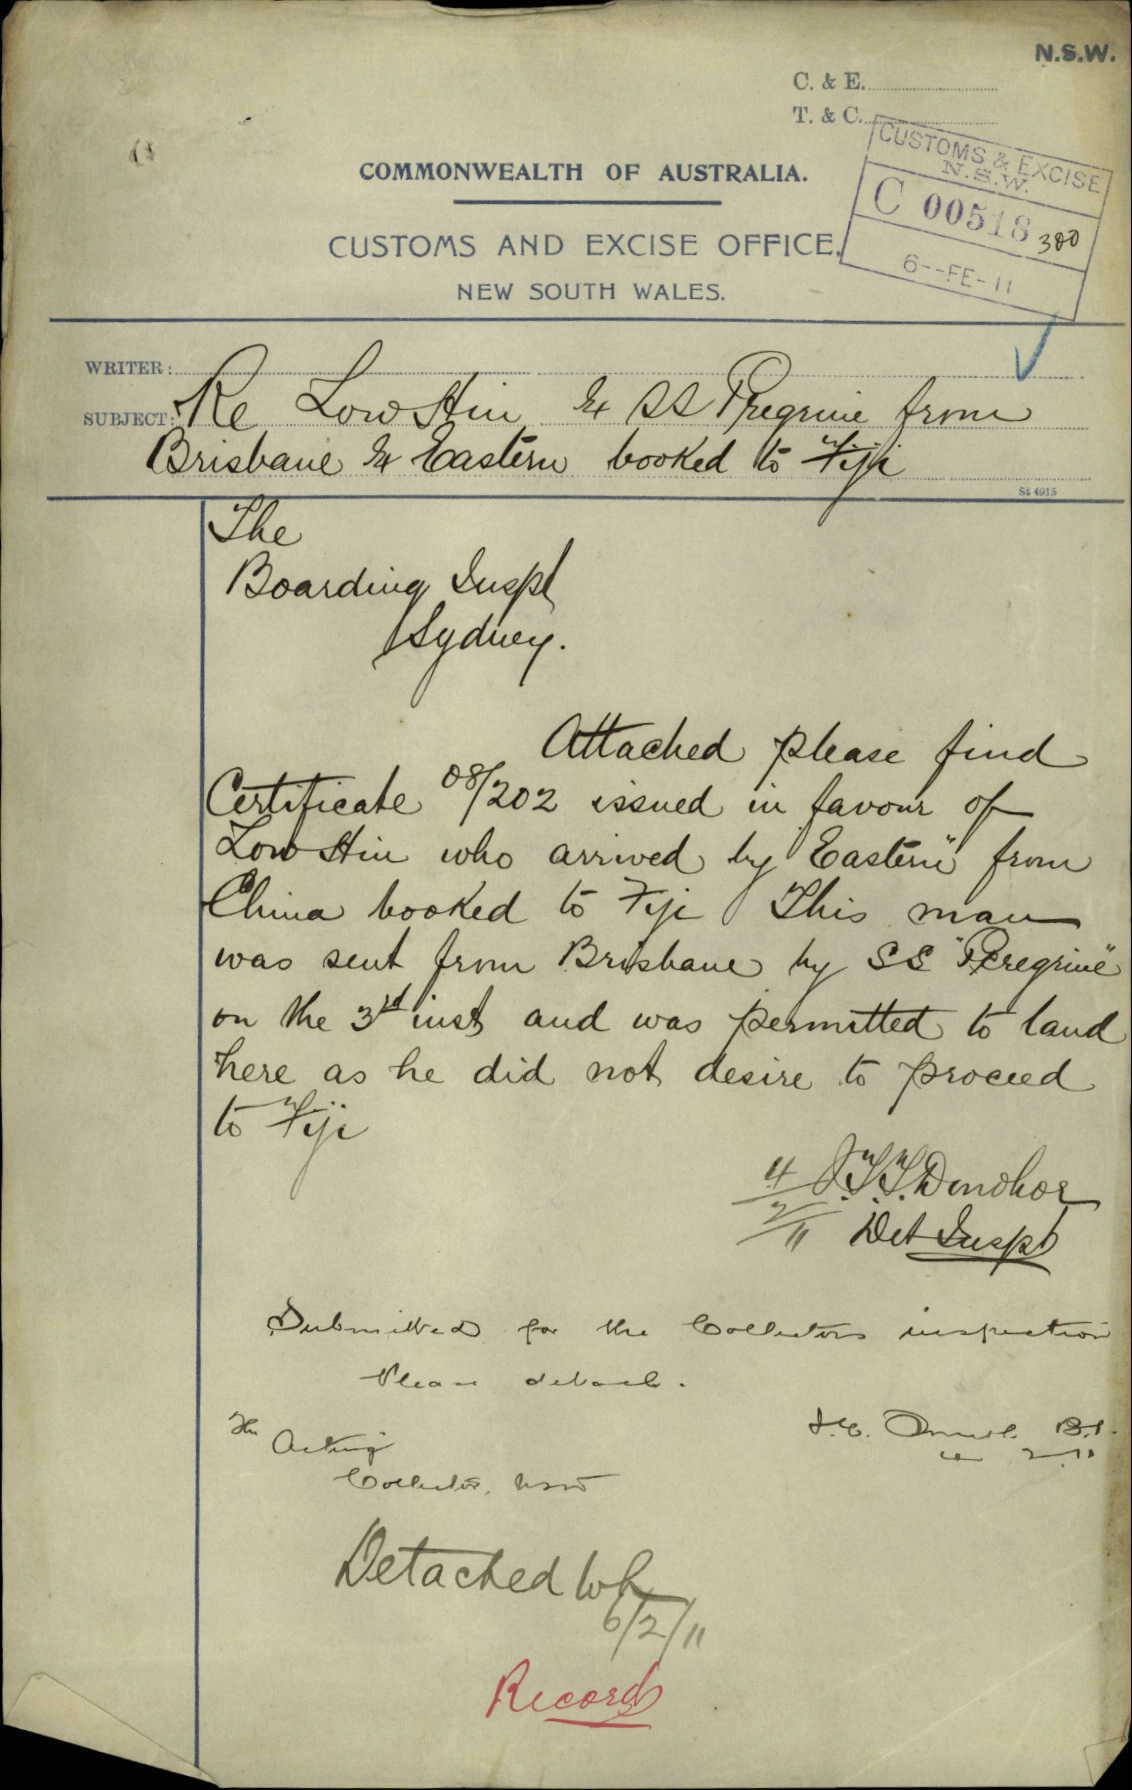 N.S.W.
C. & E.
T. & C.
CUSTOMS & EXCISE
N.S.W.
C 00518 380
6--FE-11
COMMONWEALTH OF AUSTRALIA.
CUSTOMS AND EXCISE OFFICE,
NEW SOUTH WALES.
WRITER:
SUBJECT: Re Low Hin Ex SS Peregrine from
Brisbane Ex Eastern booked to Fiji
St 4915
The
Boarding Inspr
Sydney.
Attached please find
Certificate 08/202 issued in favour of
Low Hin who arrived by "Eastern" from
China booked to Fiji This man
was sent from Brisbane by SS "Peregrine"
on the 3rd inst and was permitted to land
here as he did not desire to proceed
to Fiji
4/2/11 J.T.T. Donohoe
Det Inspr
Submitted for the Collectors inspection
Please detach.
The Acting
Collector, NSW
B.I.
2.11
Detached
6/2/11
Record